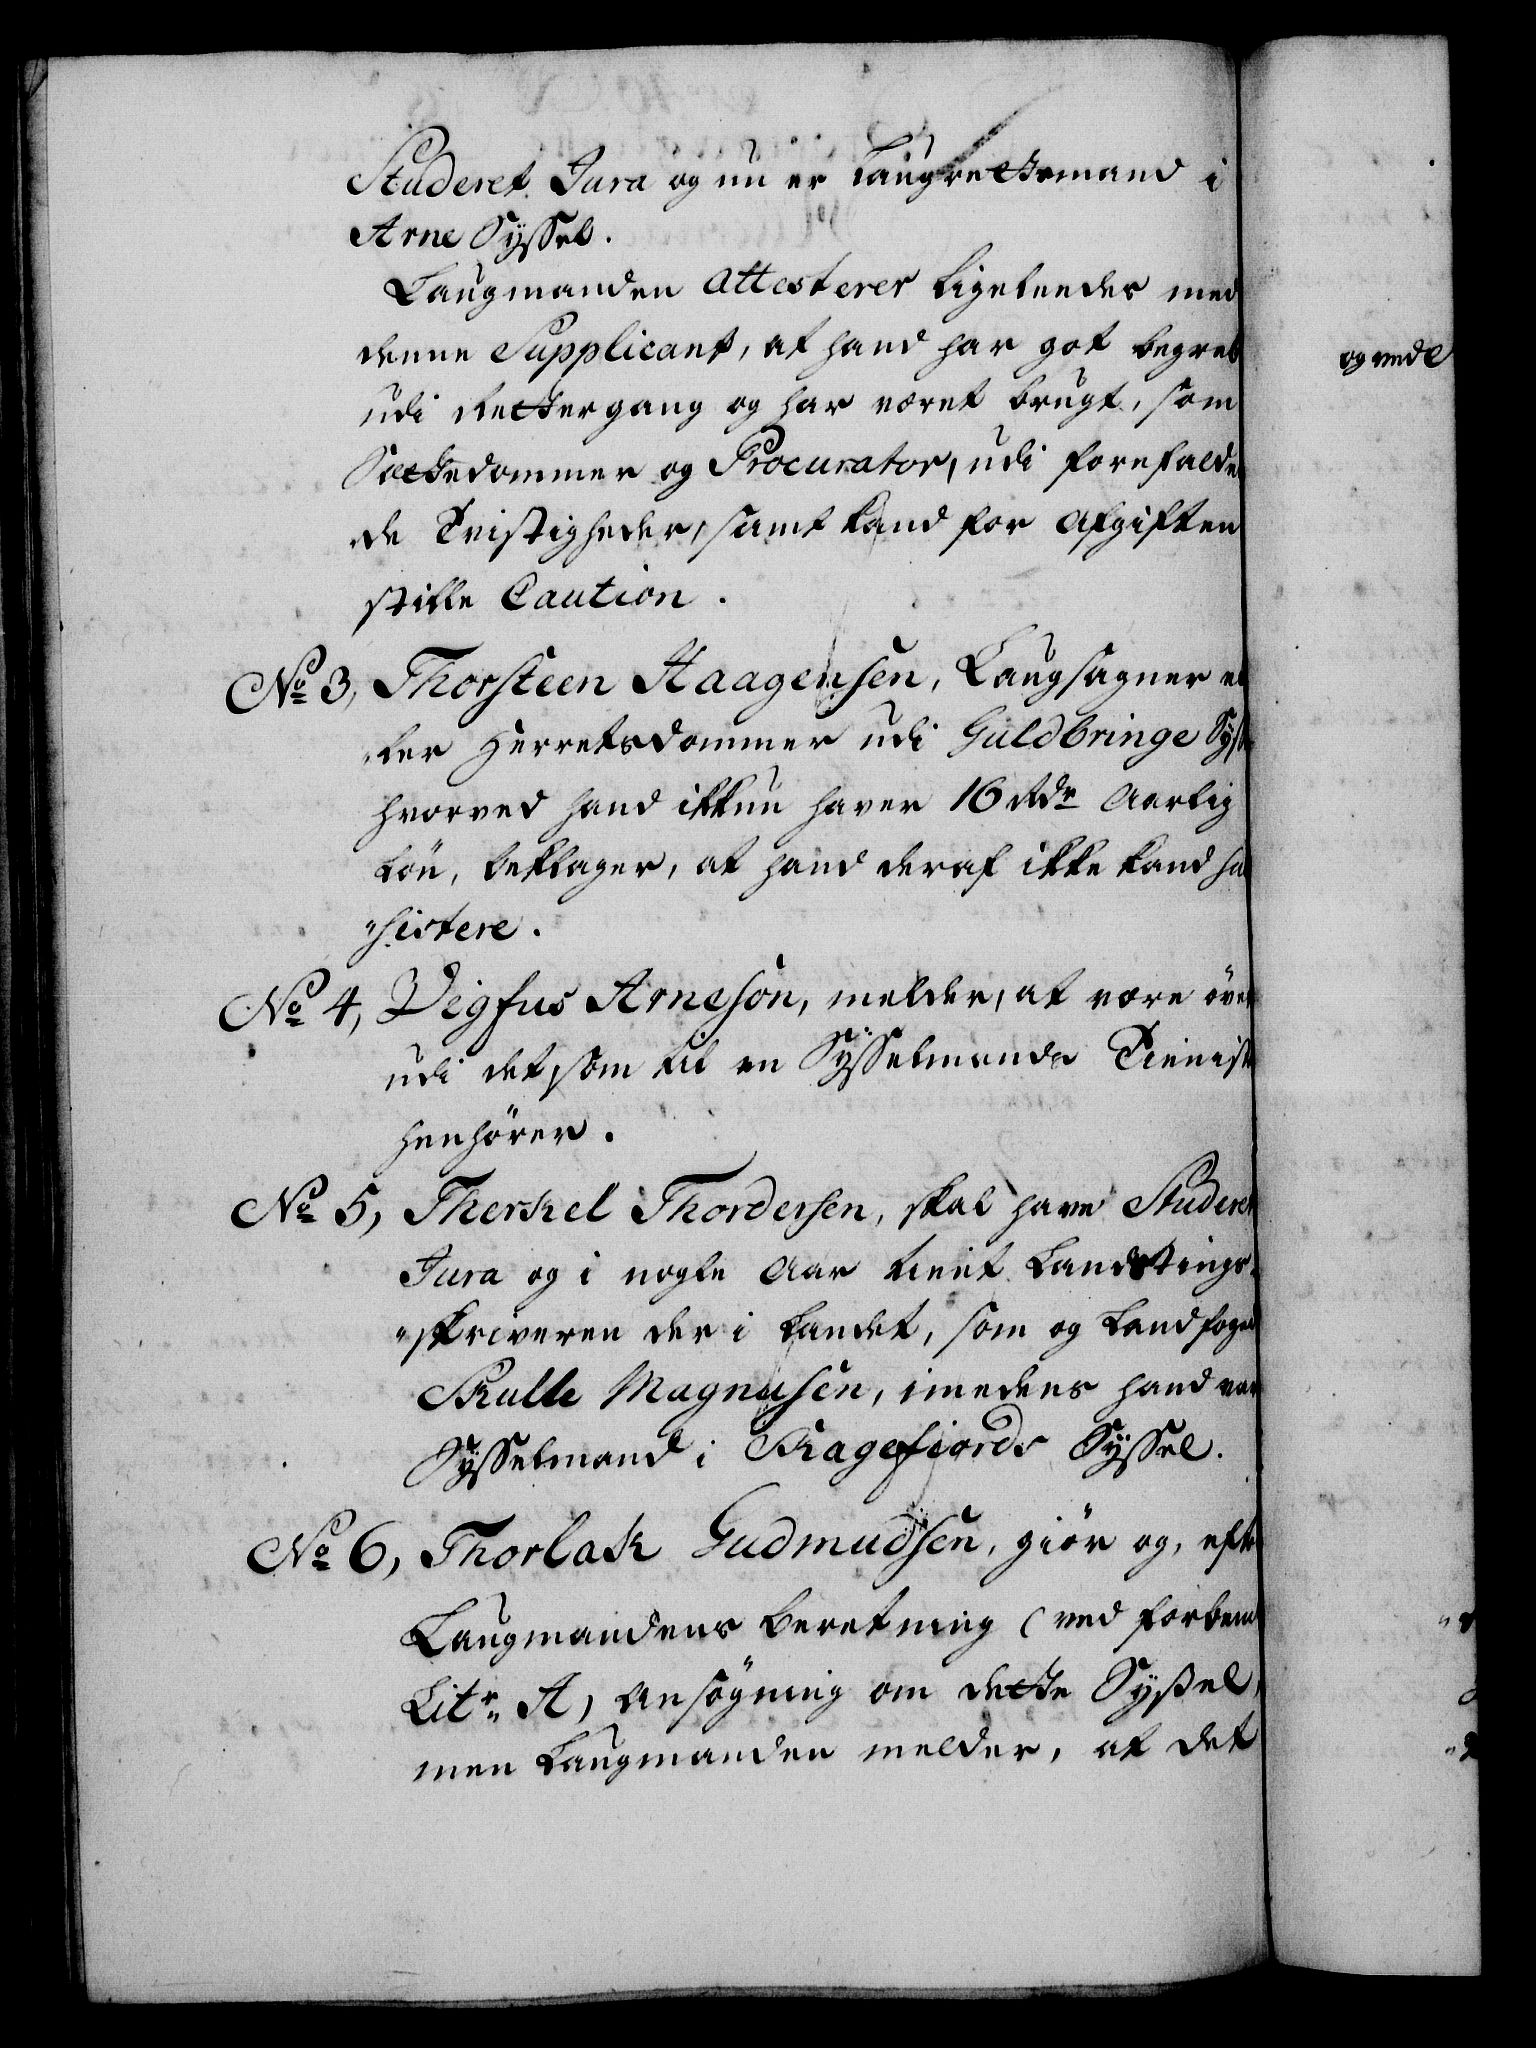 Studeret Jura og nu er Laugrettesmand i
Arne Syssel.
Laugmanden Attesterer ligeleedes med
denne Supplicant, at hand har got begreb
udi Rettergang og har været brugt, som
Sættedommer og Procurator, udi forefalden
de Tvistigheder, samt kand for Afgiften
stille Caution.
No 3, Thorsteen Haagensen, Laugsagner el
ler Herretsdommer udi Guldbringe Syss
hvorved hand ikkun haver 16 Rdr Aarlig
Løn, beklager, at hand deraf ikke kand
sistere.
No 4, Vigfus Arnesøn, melder, at være øvet
udi det, som til en Sysselmands Tieniste
henhører.
No 5, Therkel Thordersen, skal have Studeret
Jura og i nogle Aar tient Landstings-
skriveren der i Landet, som og Landfoged
Skulle Magnusen, imedens hand var
Sysselmand i Skagefiords Syssel.
No 6, Thorlak Gudmudsen, giør og, efter
Laugmandens beretning (ved forbem
Litr A) Ansøgning om dette Syssel,
men Laugmanden melder, at det
og ved